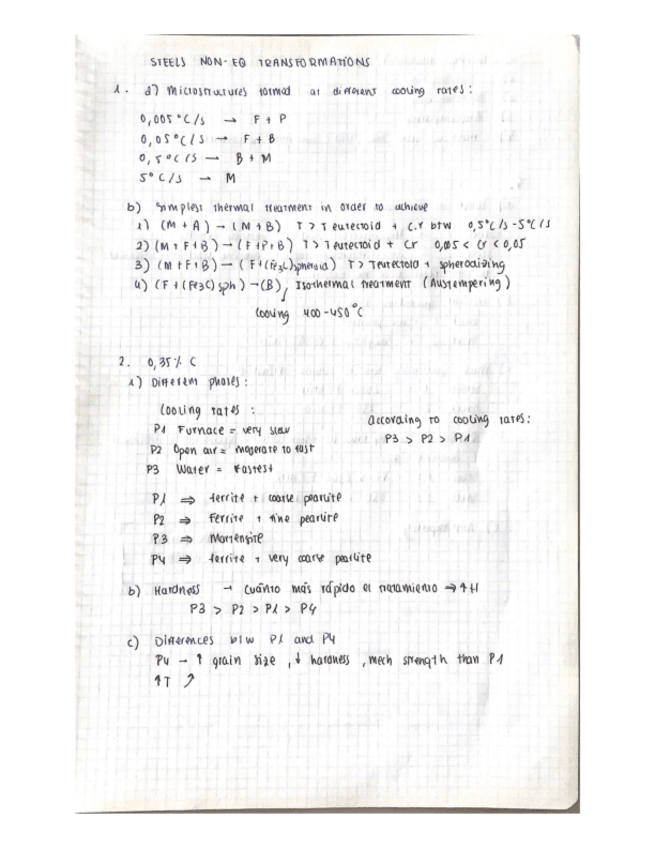 STEELS NON-EQ TRANSFORMATIONS
1. a) Microstructures formed at different cooling rates:
0,005°C/s → F + P
0,05°C/s → F + B
0,5°C/s — B + M
5°C/s → M
b) Simplest thermal treatment in order to achieve
1) (M + A) → (M + B) T > T eutectoid + c.r btw 0,5°C/s - 5°C/s
2) (M + F + B) → (F + P + B) T > T eutectoid + Cr 0,005 < Cr < 0,05
3) (M + F + B) → (F + (Fe3C) spheroid) T > T eutectoid + spherodizing
4) (F + (Fe3C) sph) → (B), Isothermal treatment (Austempering)
Cooling 400-450°C
2. 0,35% C
1) Different phases:
Cooling rates:
P1 Furnace = very slow
P2 Open air = moderate to fast
P3 Water = Fastest
According to cooling rates:
P3 > P2 > P1
P1 ⇒ ferrite + coarse pearlite
P2 ⇒ Ferrite + fine pearlite
P3 ⇒ Martensite
P4 ⇒ ferrite + very coarse pearlite
b) Hardness → cuánto más rápido el tratamiento → ↑H
P3 > P2 > P1 > P4
c) Differences btw P1 and P4
P4 → ↑ grain size, ↓ hardness, mech strength than P1
↑T ↗